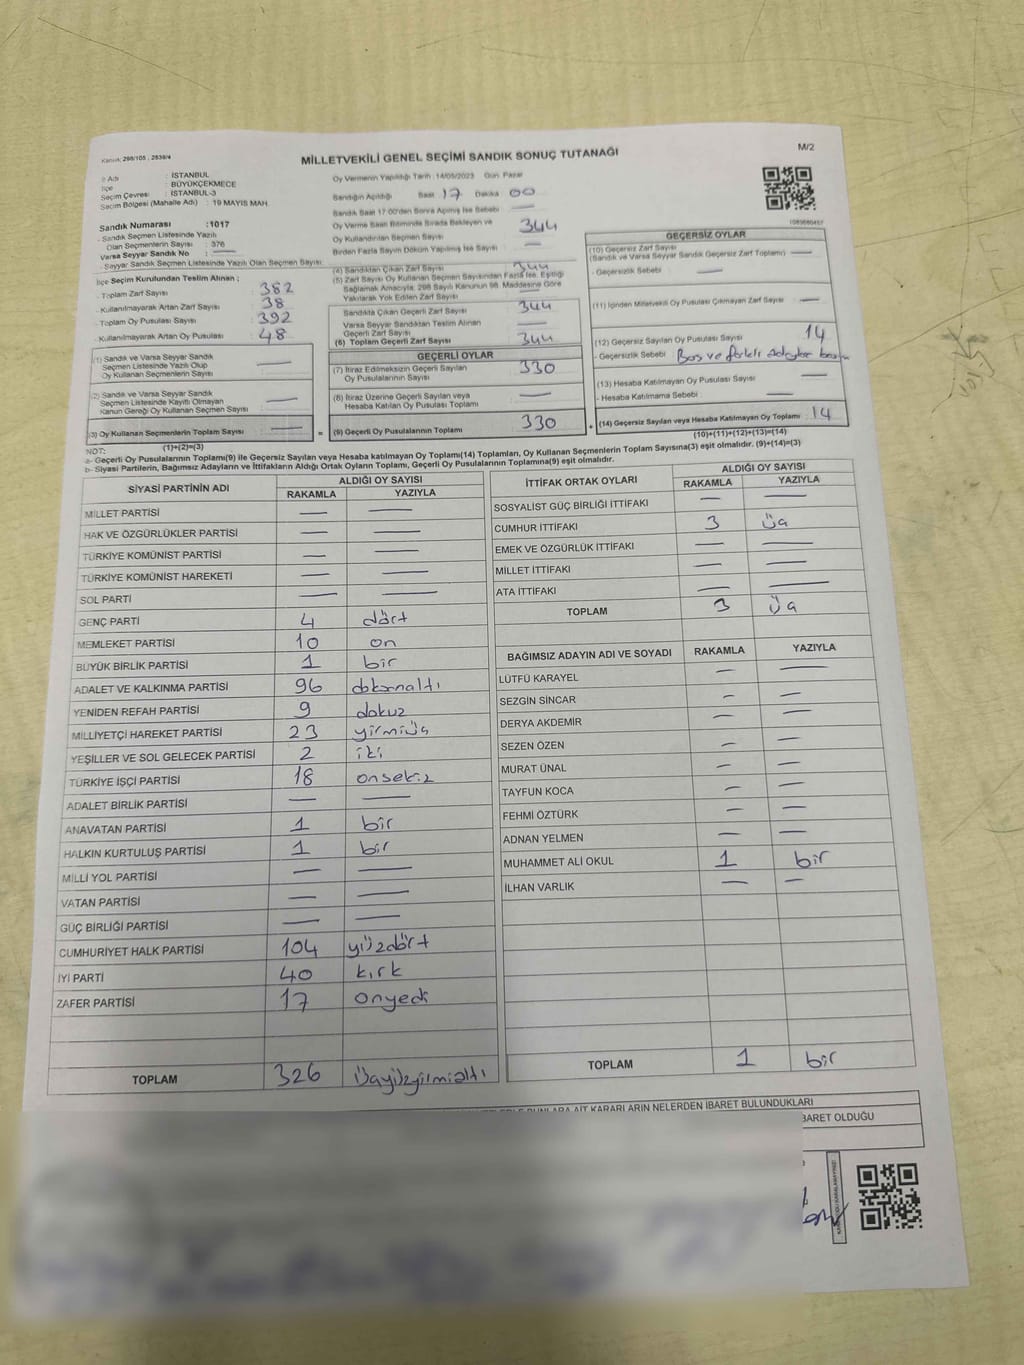 Kanun: 298/105 , 2839/4
MİLLETVEKİLİ GENEL SEÇİMİ SANDIK SONUÇ TUTANAĞI
M/2
İl Adı : İSTANBUL
İlçe : BÜYÜKÇEKMECE
Seçim Çevresi : İSTANBUL-3
Seçim Bölgesi (Mahalle Adı) : 19 MAYIS MAH.
Sandık Numarası : 1017
- Sandık Seçmen Listesinde Yazılı
Olan Seçmenlerin Sayısı : 376
Varsa Seyyar Sandık No :
- Seyyar Sandık Seçmen Listesinde Yazılı Olan Seçmen Sayısı
İlçe Seçim Kurulundan Teslim Alınan ;
- Toplam Zarf Sayısı : 382
- Kullanılmayarak Artan Zarf Sayısı : 38
- Toplam Oy Pusulası Sayısı : 392
- Kullanılmayarak Artan Oy Pusulası : 48
(1) Sandık ve Varsa Seyyar Sandık
Seçmen Listesinde Yazılı Olup
Oy Kullanan Seçmenlerin Sayısı
(2) Sandık ve Varsa Seyyar Sandık
Seçmen Listesinde Kayıtlı Olmayan
Kanun Gereği Oy Kullanan Seçmen Sayısı
(3) Oy Kullanan Seçmenlerin Toplam Sayısı
(1)+(2)=(3)
Oy Vermenin Yapıldığı Tarih : 14/05/2023 Gün: Pazar
Sandığın Açıldığı Saat 17 Dakika 00
Sandık Saat 17:00'den Sonra Açılmış İse Sebebi
Oy Verme Saati Bitiminde Sırada Bekleyen ve
Oy Kullandırılan Seçmen Sayısı 344
Birden Fazla Sayım Döküm Yapılmış İse Sayısı
(4) Sandıktan Çıkan Zarf Sayısı 344
(5) Zarf Sayısı Oy Kullanan Seçmen Sayısından Fazla İse, Eşitliği
Sağlamak Amacıyla, 298 Sayılı Kanunun 98. Maddesine Göre
Yakılarak Yok Edilen Zarf Sayısı
Sandıkta Çıkan Geçerli Zarf Sayısı 344
Varsa Seyyar Sandıktan Teslim Alınan
Geçerli Zarf Sayısı
(6) Toplam Geçerli Zarf Sayısı 344
GEÇERLİ OYLAR
(7) İtiraz Edilmeksizin Geçerli Sayılan
Oy Pusulalarının Sayısı 330
(8) İtiraz Üzerine Geçerli Sayılan veya
Hesaba Katılan Oy Pusulası Toplamı
(9) Geçerli Oy Pusulalarının Toplamı 330
GEÇERSİZ OYLAR
(10) Geçersiz Zarf Sayısı
(Sandık ve Varsa Seyyar Sandık Geçersiz Zarf Toplamı)
- Geçersizlik Sebebi
(11) İçinden Milletvekili Oy Pusulası Çıkmayan Zarf Sayısı
(12) Geçersiz Sayılan Oy Pusulası Sayısı 14
- Geçersizlik Sebebi Boş ve farklı adaylar
(13) Hesaba Katılmayan Oy Pusulası Sayısı
- Hesaba Katılmama Sebebi
(14) Geçersiz Sayılan veya Hesaba Katılmayan Oy Toplamı : 14
(10)+(11)+(12)+(13)=(14)
NOT:
a- Geçerli Oy Pusulalarının Toplamı(9) ile Geçersiz Sayılan veya Hesaba katılmayan Oy Toplamı(14) Toplamları, Oy Kullanan Seçmenlerin Toplam Sayısına(3) eşit olmalıdır. (9)+(14)=(3)
b- Siyasi Partilerin, Bağımsız Adayların ve İttifakların Aldığı Ortak Oyların Toplamı, Geçerli Oy Pusulalarının Toplamına(9) eşit olmalıdır.
SİYASİ PARTİNİN ADI ALDIĞI OY SAYISI
RAKAMLA YAZIYLA
MİLLET PARTİSİ
HAK VE ÖZGÜRLÜKLER PARTİSİ
TÜRKİYE KOMÜNİST PARTİSİ
TÜRKİYE KOMÜNİST HAREKETİ
SOL PARTİ
GENÇ PARTİ 4 dört
MEMLEKET PARTİSİ 10 on
BÜYÜK BİRLİK PARTİSİ 1 bir
ADALET VE KALKINMA PARTİSİ 96 doksanaltı
YENİDEN REFAH PARTİSİ 9 dokuz
MİLLİYETÇİ HAREKET PARTİSİ 23 yirmiüç
YEŞİLLER VE SOL GELECEK PARTİSİ 2 iki
TÜRKİYE İŞÇİ PARTİSİ 18 onsekiz
ADALET BİRLİK PARTİSİ
ANAVATAN PARTİSİ 1 bir
HALKIN KURTULUŞ PARTİSİ 1 bir
MİLLİ YOL PARTİSİ
VATAN PARTİSİ
GÜÇ BİRLİĞİ PARTİSİ
CUMHURİYET HALK PARTİSİ 104 yüzdört
İYİ PARTİ 40 kırk
ZAFER PARTİSİ 17 onyedi
TOPLAM 326 üçyüzyirmialtı
İTTİFAK ORTAK OYLARI ALDIĞI OY SAYISI
RAKAMLA YAZIYLA
SOSYALİST GÜÇ BİRLİĞİ İTTİFAKI
CUMHUR İTTİFAKI 3 üç
EMEK VE ÖZGÜRLÜK İTTİFAKI
MİLLET İTTİFAKI
ATA İTTİFAKI
TOPLAM 3 üç
BAĞIMSIZ ADAYIN ADI VE SOYADI RAKAMLA YAZIYLA
LÜTFÜ KARAYEL
SEZGİN SİNCAR
DERYA AKDEMİR
SEZEN ÖZEN
MURAT ÜNAL
TAYFUN KOCA
FEHMİ ÖZTÜRK
ADNAN YELMEN
MUHAMMET ALİ OKUL 1 bir
İLHAN VARLIK
TOPLAM 1 bir
AİT KARARLARIN NELERDEN İBARET BULUNDUKLARI
BARET OLDUĞU